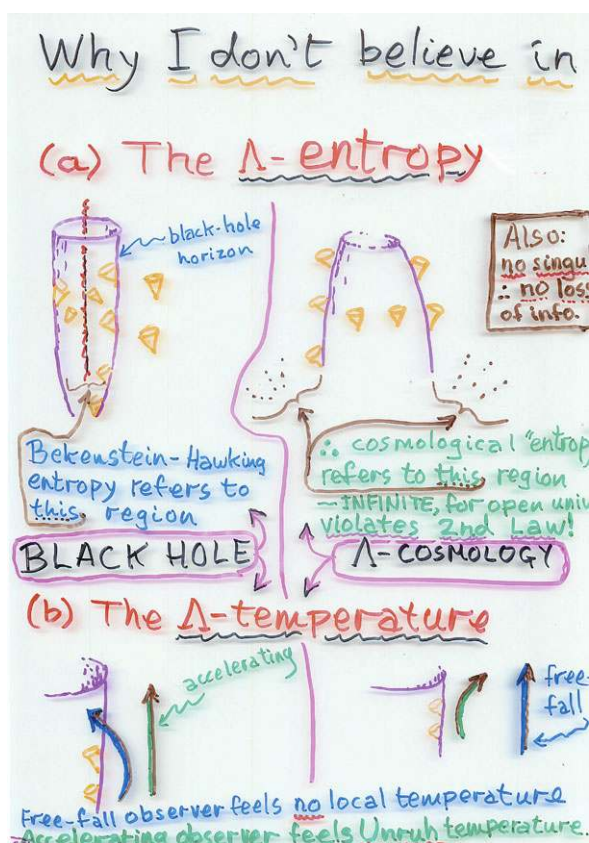 Why I don't believe in
(a) The Λ-entropy
black-hole
horizon
Also:
no singu
∴ no loss
of info.
Bekenstein-Hawking
entropy refers to
this region
∴ cosmological "entrop
refers to this region
— INFINITE, for open univ
violates 2nd Law!
BLACK HOLE
Λ-COSMOLOGY
(b) The Λ-temperature
accelerating
free-
fall
Free-fall observer feels no local temperature
Accelerating observer feels Unruh temperature.